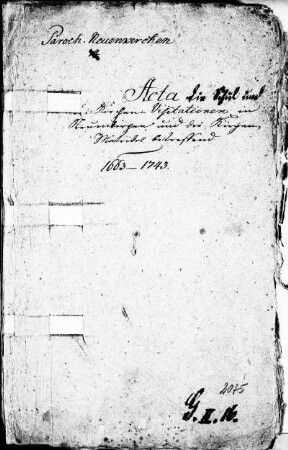 Paroch. Neuenwercken
Acta die Schul und
Kirchen Visitationen in
und der Kirchen
Matricul betreffend
1663–1743.
4075
G. II. 16.